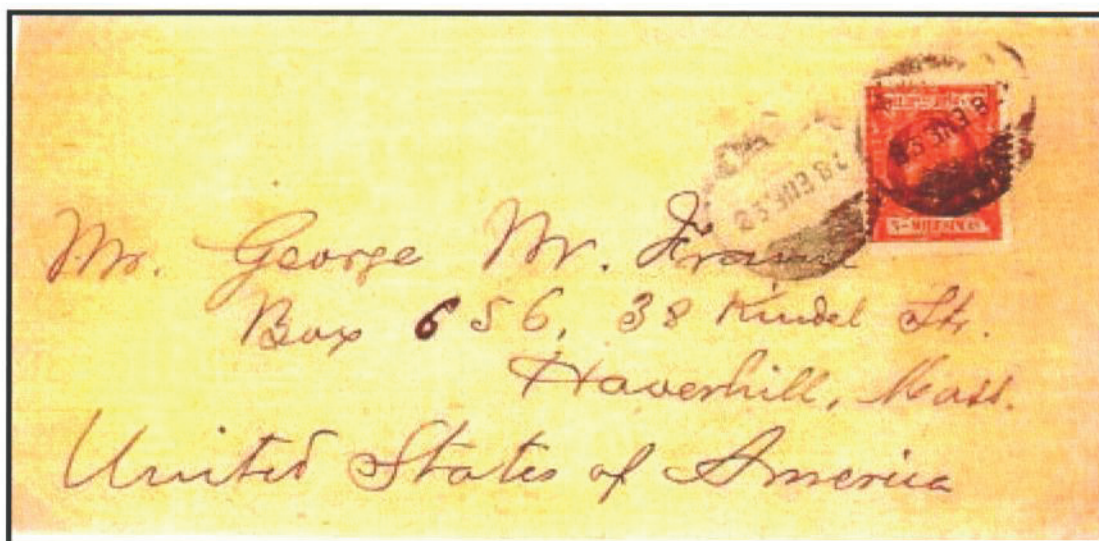 28 ENE 98
8 ENE 98
5 MILESIMAS
Mr. George W. Frame
Box 656, 38 Kindel Str.
Haverhill, Mass.
United States of America